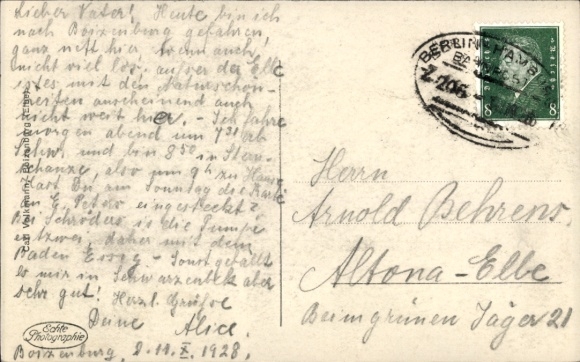 Lieber Vater! Heute bin ich
nach Boizenburg gefahren,
ganz nett hier wenn auch
nicht viel los, außer der Elbe
ist es mit den Naturschön-
heiten anscheinend auch
nicht weit her. - Ich fahre
morgen abend um 7 31 ab
Schw. und bin 8 50 in Stern-
schanze, also um 9 h zu Hause
Hast Du am Sonntag die Karte
an G. Peters eingesteckt?
Bei Schröders is die Pumpe
entzwei, daher mit dem
Baden Essig. - Sonst gefällt
es mir in Schwarzenbek aber
sehr gut! Herzl. Grüße
Deine Alice.
Boizenburg, d. 11. X. 1928.
Echte
Photographie
BERLIN-HAMB
BAHNPOST
Z. 206
8 8
Herrn
Arnold Behrens.
Altona-Elbe
Beim grünen Jäger 21